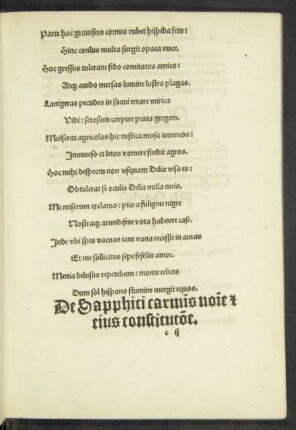 Parte hac granifero cornus rubet hispida fetu:
Hinc corilus multa surgit opaca nuce.
Huc gressus tuleram fido comitatus amico:
Atq; auido mersus lumine lustro plagas.
Lanigeras pecudes in suaui errare mirica
Vidi: setosum carpere prata gregem.
Mulserat agricolas hic rustica musa iuuencos:
Immerso et letos vomere findit agros.
Hoc mihi despecta non vsquam Delia visa es:
Obtulerat se oculis Delia nulla meis.
Me miserum exclamo: pice a fuligine nigre
Nostraq; arundifere vota habuere case.
Inde vbi spes vacuas iam vana recessit in auras
Et me sollicitus sepe fefellit amor.
Menia delusus repetebam: monte relicto
Dum sol hispano flumine mergit equos.
De Sapphici carmis noie ⁊
eius constitutōe.
c ij